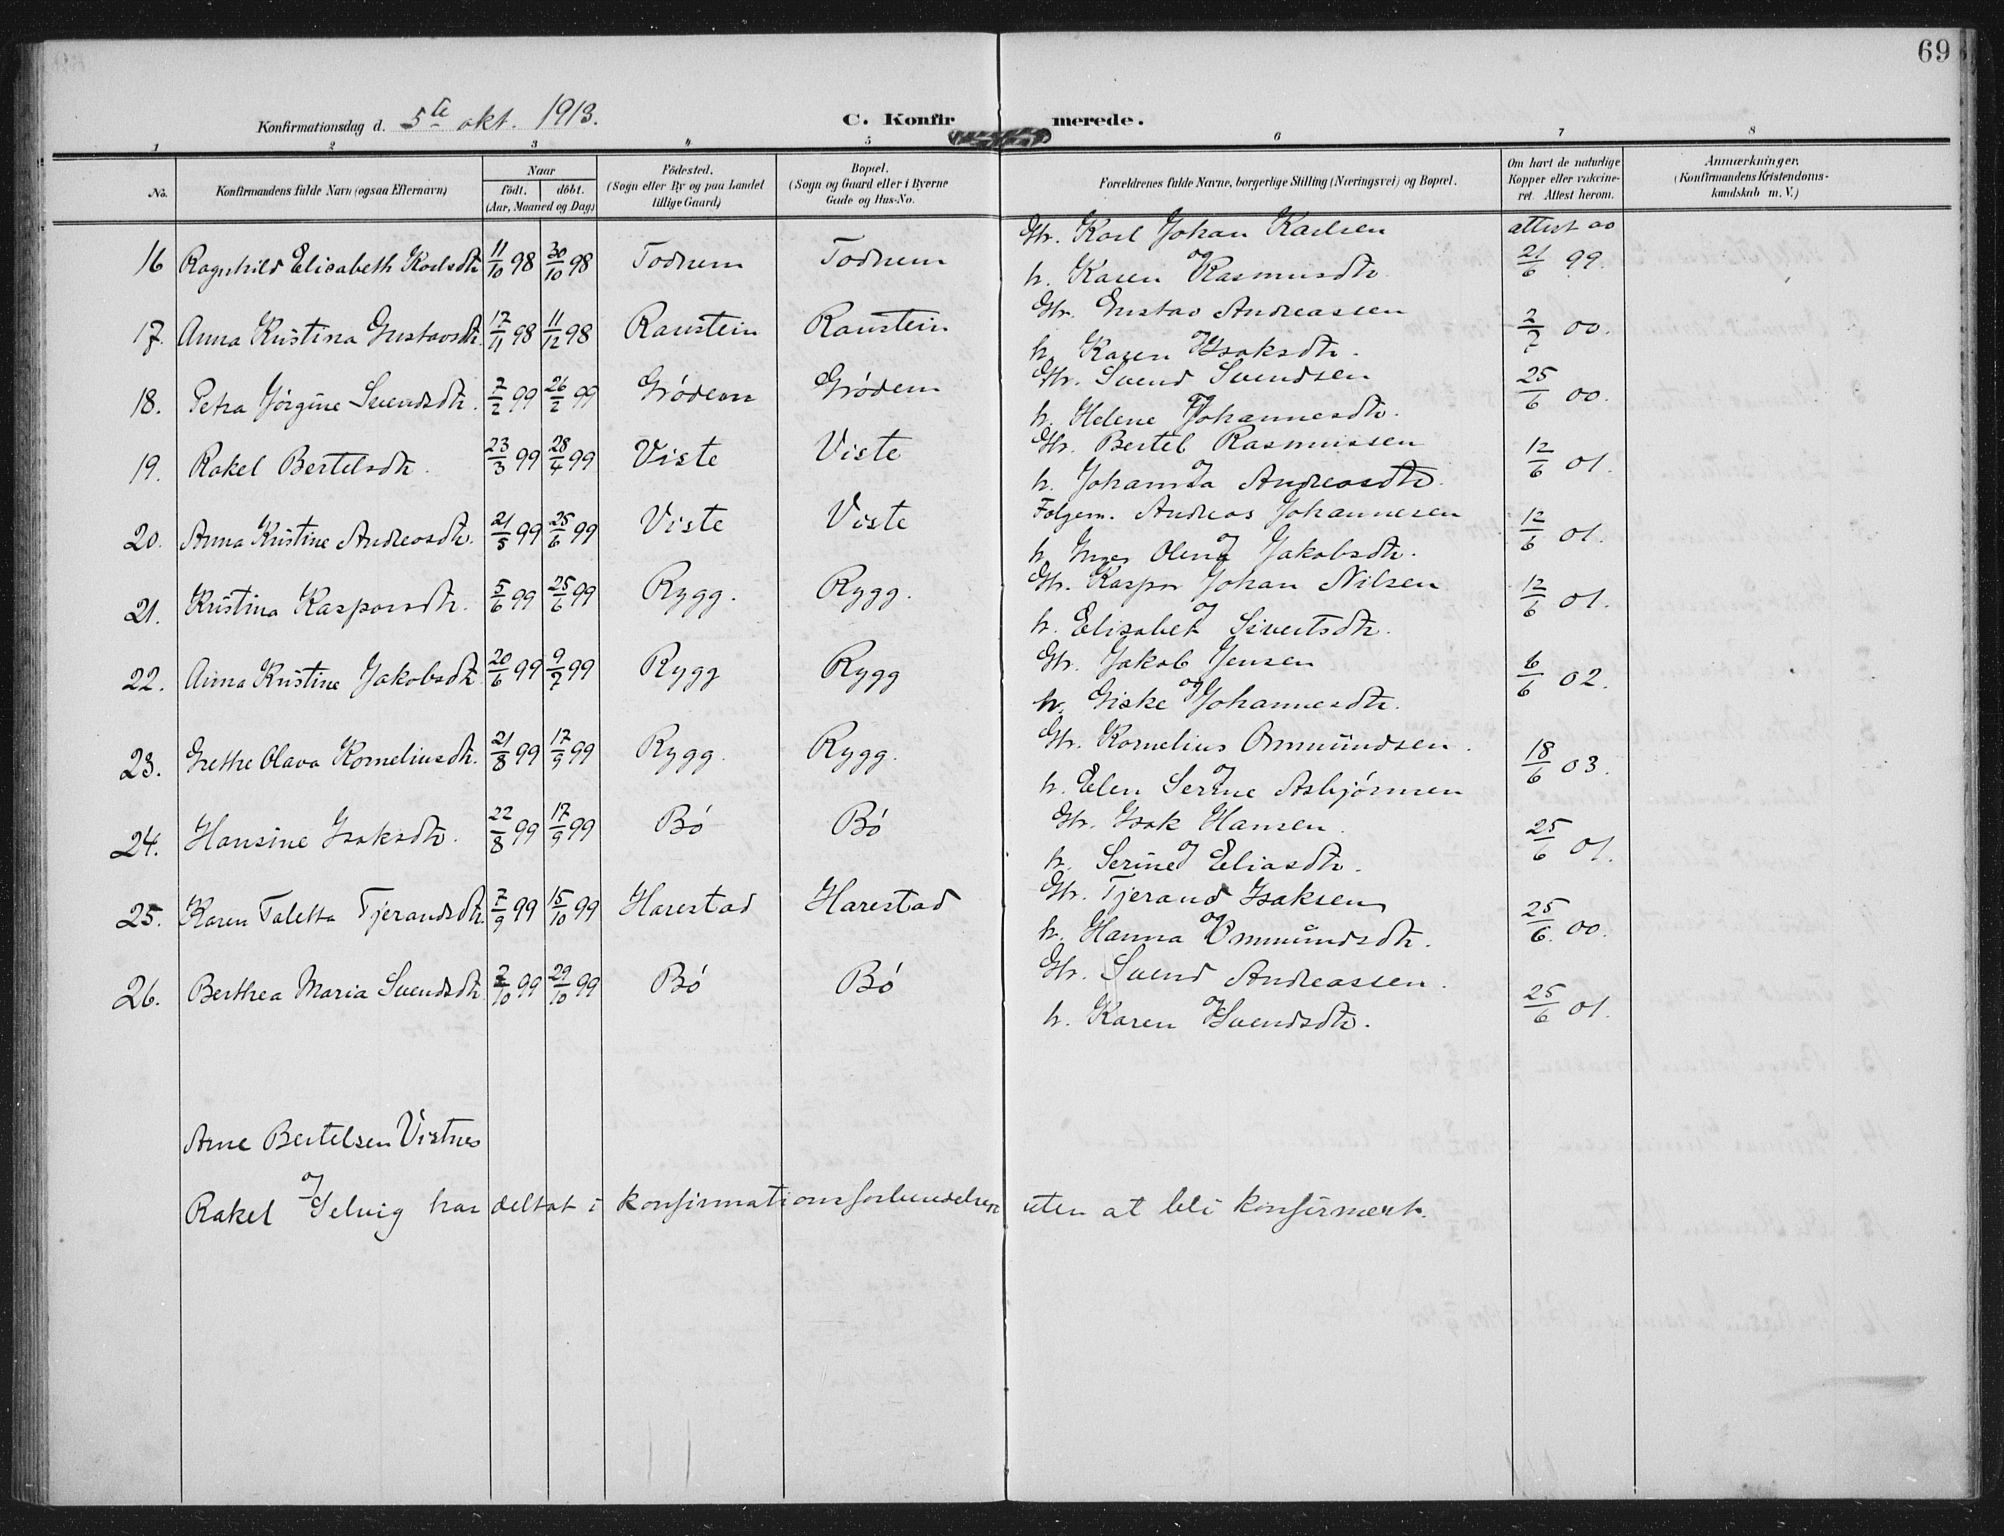 69
Konfirmationsdag d. 5te okt. 1913.
C. Konfirmerede.
1 2 3 4 5 6 7 8
No. Konfirmandens fulde Navn (ogsaa Efternavn) Naar födt. döbt. (Aar, Maaned og Dag) Födested. (Sogn eller By og paa Landet tillige Gaard) Bopæl. (Sogn og Gaard eller i Byerne Gade og Hus-No. Forældrenes fulde Navne, borgerlige Stilling (Næringsvei) og Bopæl. Om havt de naturlige Kopper eller vakcineret. Attest herom. Anmærkninger. (Konfirmandens Kristendomskundskab m. V.)
Gbr. Karl Johan Karlsen attest av
16 Ragnhild Elisabeth Karlsdtr 11/10 98 30/10 98 Todnem Todnem og 21/6 99.
h. Karen Rasmusdtr.
Gbr. Gustav Andreassen
17. Anna Kristina Gustavsdtr. 17/11 98 11/12 98 Ranstein Ranstein og 2/7 00.
h. Karen Isaksdtr.
Gbr. Svend Svendsen
18. Petra Jørgine Svendsdtr. 7/2 99 26/2 99 Grødem Grødem og 25/6 00.
h. Helene Johannesdtr.
Gbr. Bertel Rasmussen
19. Rakel Bertelsdtr. 23/3 99 28/4 99 Viste Viste og 12/6 01.
h. Johanna Andreasdtr.
Folgem. Andreas Johannesen
20. Anna Kristine Andreasdtr. 21/5 99 25/6 99 Viste Viste og 12/6 01.
h. Inger Olena Jakobsdtr.
Gbr. Kaspar Johan Nilsen
21. Kristina Kasparsdtr. 5/6 99 25/6 99 Rygg. Rygg. og 12/6 01.
h. Elisabet Sivertsdtr.
Gbr. Jakob Jensen
22. Anna Kristine Jakobsdtr. 20/6 99 9/7 99 Rygg Rygg og 6/6 02.
h. Giske Johannesdtr.
Gbr. Kornelius Ommundsen.
23. Grethe Olava Korneliusdtr. 21/8 99 17/9 99 Rygg. Rygg. og 18/6 03.
h. Elen Serine Asbjørnsen
Gbr. Isak Hansen.
24. Hansine Isaksdtr. 22/8 99 17/9 99 Bø Bø og 25/6 01.
h. Serine Eliasdtr.
Gbr. Tjerand Isaksen
25. Karen Taletta Tjerandsdtr. 7/9 99 15/10 99 Harestad Harestad og 25/6 00.
h. Hanna Ommundsdtr.
Gbr. Svend Andreassen.
26. Berthea Maria Svendsdtr 2/10 99 29/10 99 Bø Bø og 25/6 01.
h. Karen Svendsdtr.
Arne Bertelsen Vistnes
og
Rakel Selvig har deltat i konfirmationsforberedelsen uten at bli konfirmert.